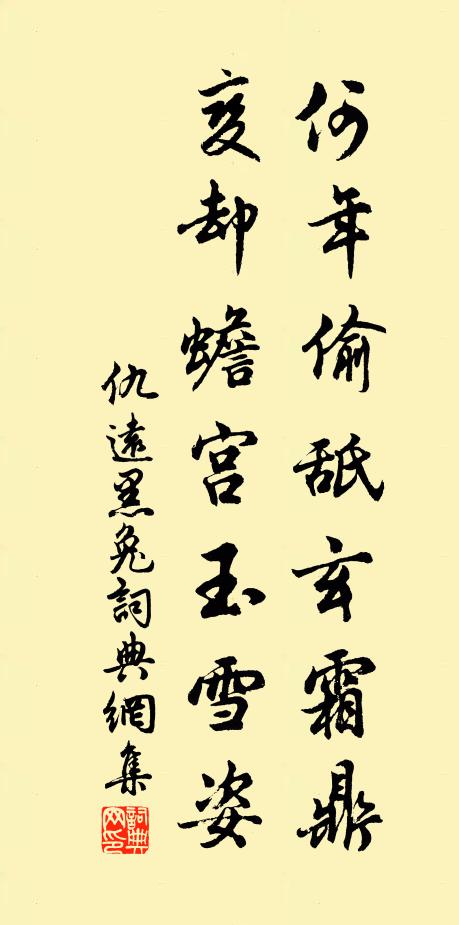 何年偷舐玄霜鼎
变却蟾宫玉雪姿
仇遠黑兔詞典網集
詞典网印